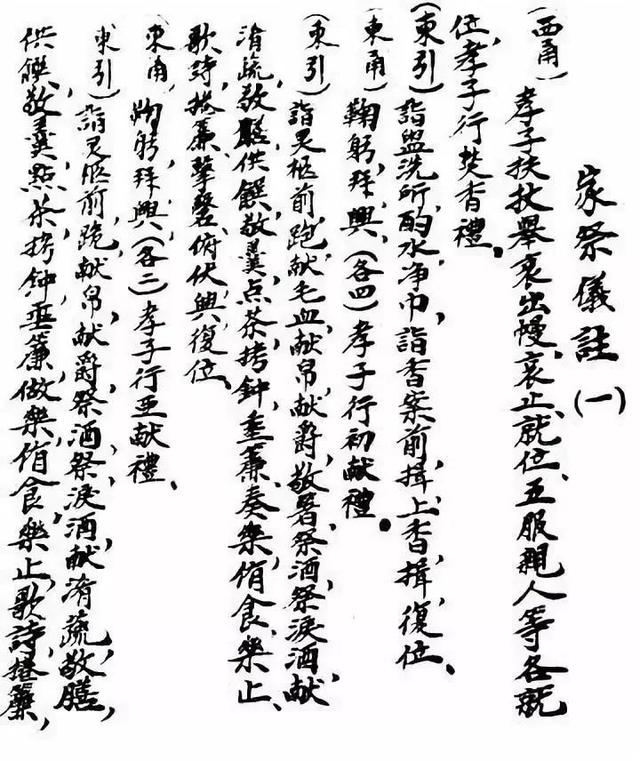 家祭儀註(一)
(西甬)孝子扶杖舉哀出幔、哀止、就位、五服親人等各就
位、孝子行焚香禮、
(東引)詣盥洗所、酌水、净巾、詣香案前、揖、上香、揖、復位、
(東甬)鞠躬、拜、興、(各四)孝子行初献禮。
(東引)詣灵柩前、跪、献毛血、献帛、献爵、敬箸、祭酒、祭淚酒、献
淯蔬、敬膳、供饌、敬羹、点茶、拷鈡、垂簾、奏樂、侑食、樂止、
歌詩、捲簾、擊磬、俯伏、興、復位、
東甬 鞠躬、拜、興、(各二)孝子行亚献禮、
東引)詣灵柩前、跪、献帛、献爵、祭酒、祭淚酒、献淯蔬、敬膳、
供饌、敬羹、點茶、拷钟、垂簾、做樂、侑食、樂止、歌詩、捲簾、